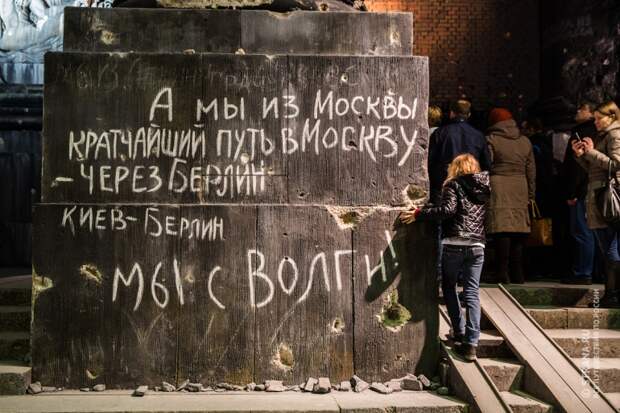 А мы из Москвы
Кратчайший путь в Москву
- через Берлин
Киев-Берлин
Мы с Волги!